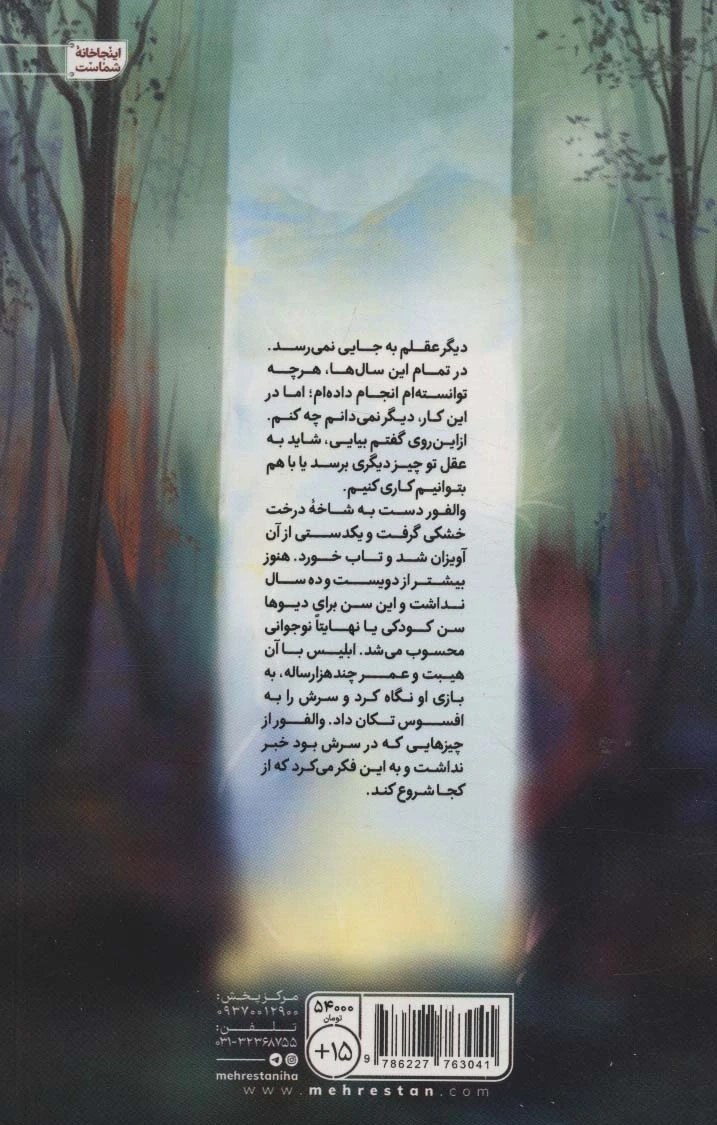 اینجا خانهٔ
شماست
دیگر عقلم به جایی نمی‌رسد.
در تمام این سال‌ها، هرچه
توانسته‌ام انجام داده‌ام؛ اما در
این کار، دیگر نمی‌دانم چه کنم.
ازاین‌روی گفتم بیایی، شاید به
عقل تو چیز دیگری برسد یا با هم
بتوانیم کاری کنیم.
والفور دست به شاخهٔ درخت
خشکی گرفت و یکدستی از آن
آویزان شد و تاب خورد. هنوز
بیشتر از دویست و ده سال
نداشت و این سن برای دیوها
سن کودکی یا نهایتاً نوجوانی
محسوب می‌شد. ابلیس با آن
هیبت و عمر چندهزارساله، به
بازی او نگاه کرد و سرش را به
افسوس تکان داد. والفور از
چیزهایی که در سرش بود خبر
نداشت و به این فکر می‌کرد که از
کجا شروع کند.
مرکز پخش:
۰۹۳۷۰۰۱۲۹۰۰
تلفن:
۰۳۱-۳۲۳۶۸۷۵۵
mehrestaniha
۵۴۰۰۰
تومان
+۱۵
9 786227 763041
www.mehrestan.com